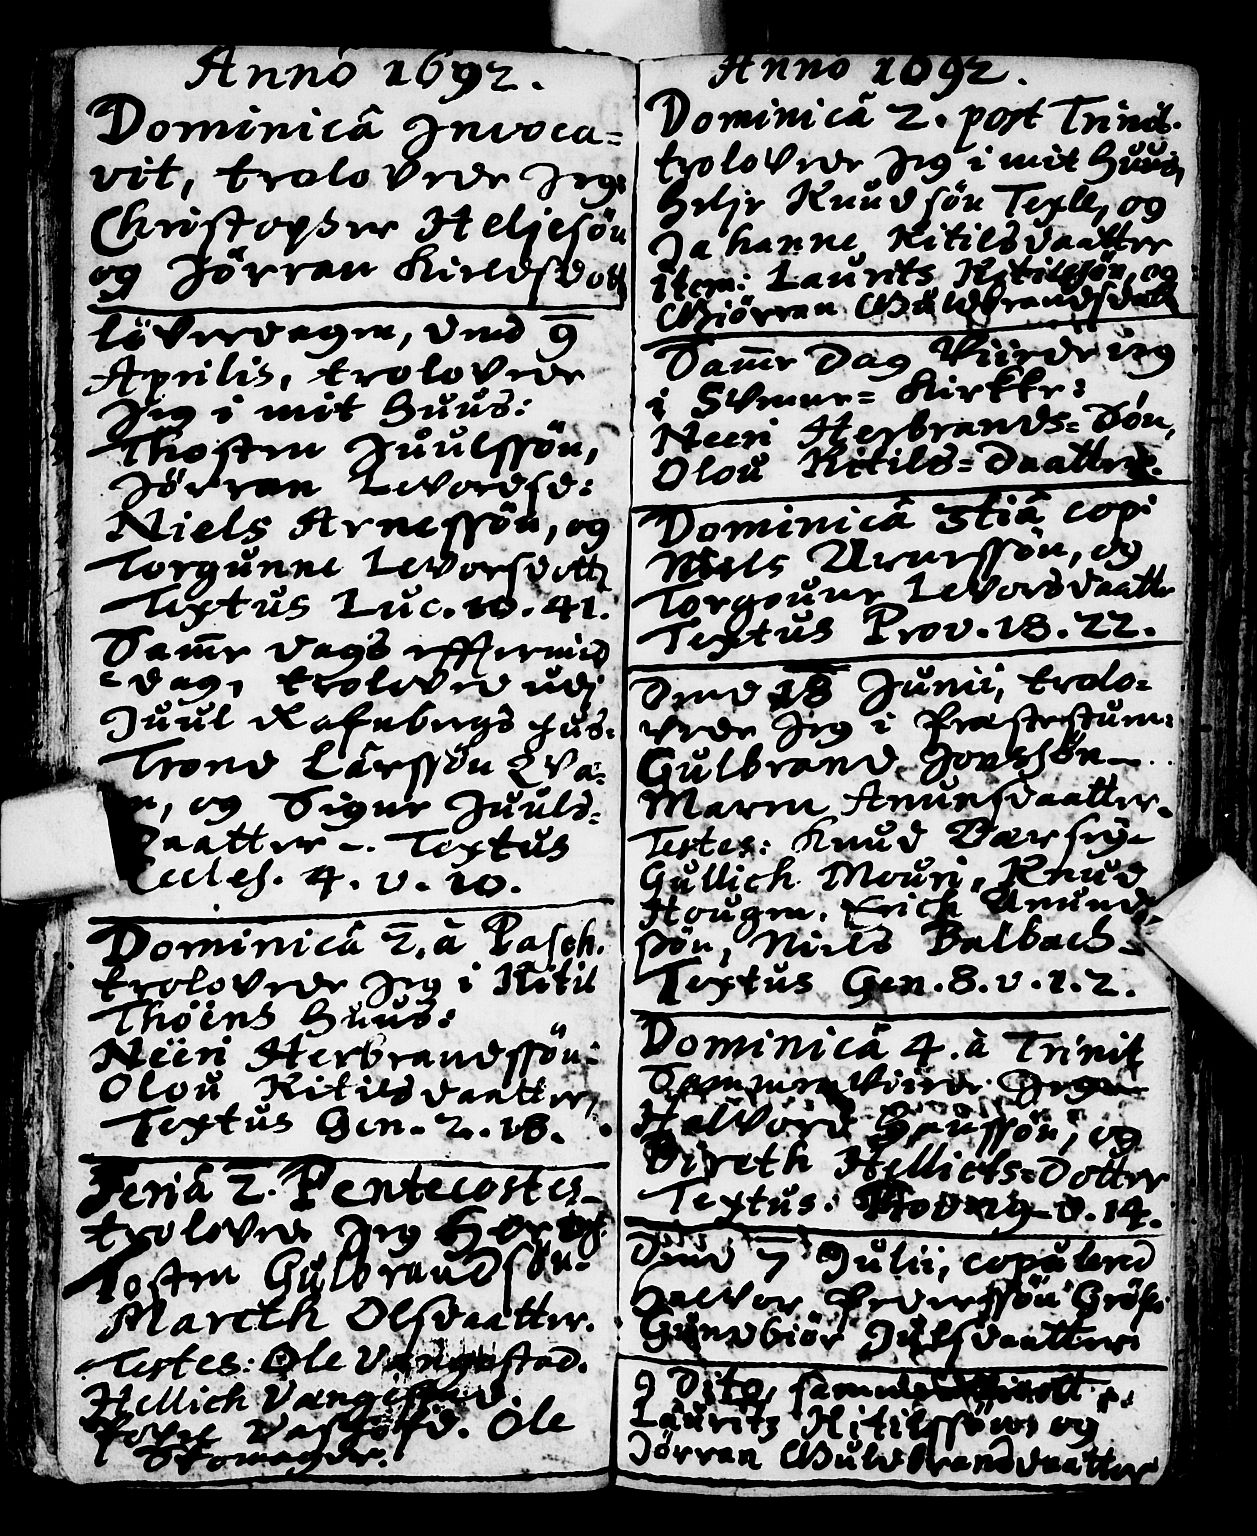 Anno 1692.
Dominicâ Invoca=
vit, trolovede Jeg
Christopher Heljesön
og Jörran Kieldsdott
löverdagen, dend 9
Aprilis, trolovede
Jeg i mit Huus:
Thosten Juulssön,
Jörran Levordsd:
Niels Arnessön, og
Torgunne Levorsdott
Textus Luc. 10. 41.
Samme dags effter mid
=dag, troloved udj
Juul Rafnbergs hus:
Trond Larssön
og Signe Juuls=
Daatter -. Textus
Eccles. 4. v. 10.
Dominicâ 2. à Pasch.
trolovede Jeg i Kitil
Thöens Huus:
Neëri Herbrandssön:
Olou Kitilsdaatter,
Textus Gen. 2. 18.
Feriâ 2. Pentecostes
trolovede Jeg
Tosten Gulbrandsön
Mareth Olsdaatter.
Testes: Ole Vangestad.
Hellich Vangestad
Ole
Skomager.
Anno 1692.
Dominicâ 2. post Trinit.
trolovede Jeg i mit Huus,
Helje Knudsön Texle, og
Johanne Kitilsdaatter
item: Laurits Kitilssön, og
Giörran Guldbrandsdaatt
Samme Dag Viede ieg
i Svenne= Kirkke:
Neeri Herbrands=Sön,
Olou Kitils=Daatter.
Dominicâ 3tiâ copi
Niels Arnessön, og
Torgoune Levorsdaatter
Textus Prov. 18. 22.
Dend 18 Junii, trolo=
vede Jeg i Præstestum:
Gulbrand Jonssön
Maren Anunsdaatter.
Testes: Knud
Gullich Mouri, Knud
Hougen, Erich Amund
ssön, Niels Balbach
Textus Gen. 8. v. 1. 2.
Dominicâ 4. à Trinit
Sammenviede Jeg
Halvord Hanssön, og
Bireth Hellichs=Dotter
Textus: v. 14.
Dend 7 Julii, copulered
Halvor Pederssön
Gundbiör Julsdaatter.
9 Dito,
Lauritz Kitilssön og
Jörran Guldbrandsdaatter